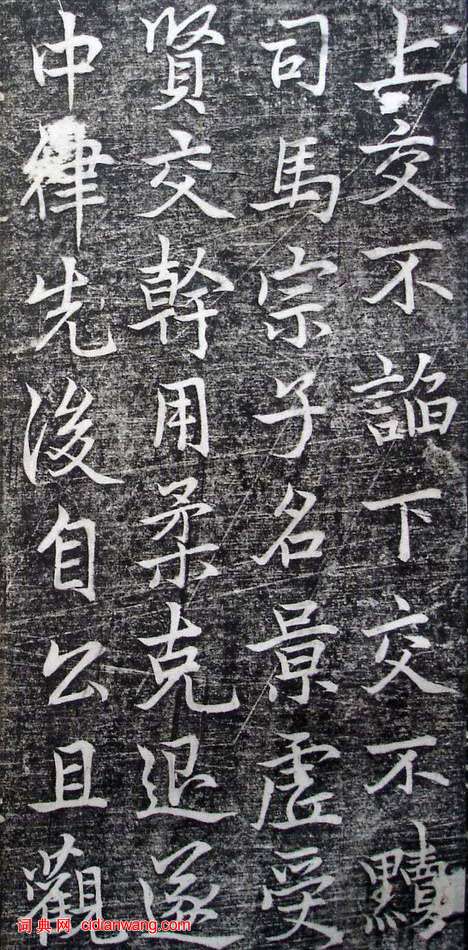 上交不諂下交不黷
司馬宗子名景虛受
賢交幹用柔克退遜
中律先後自公且觀
词典网 cidianwang.com